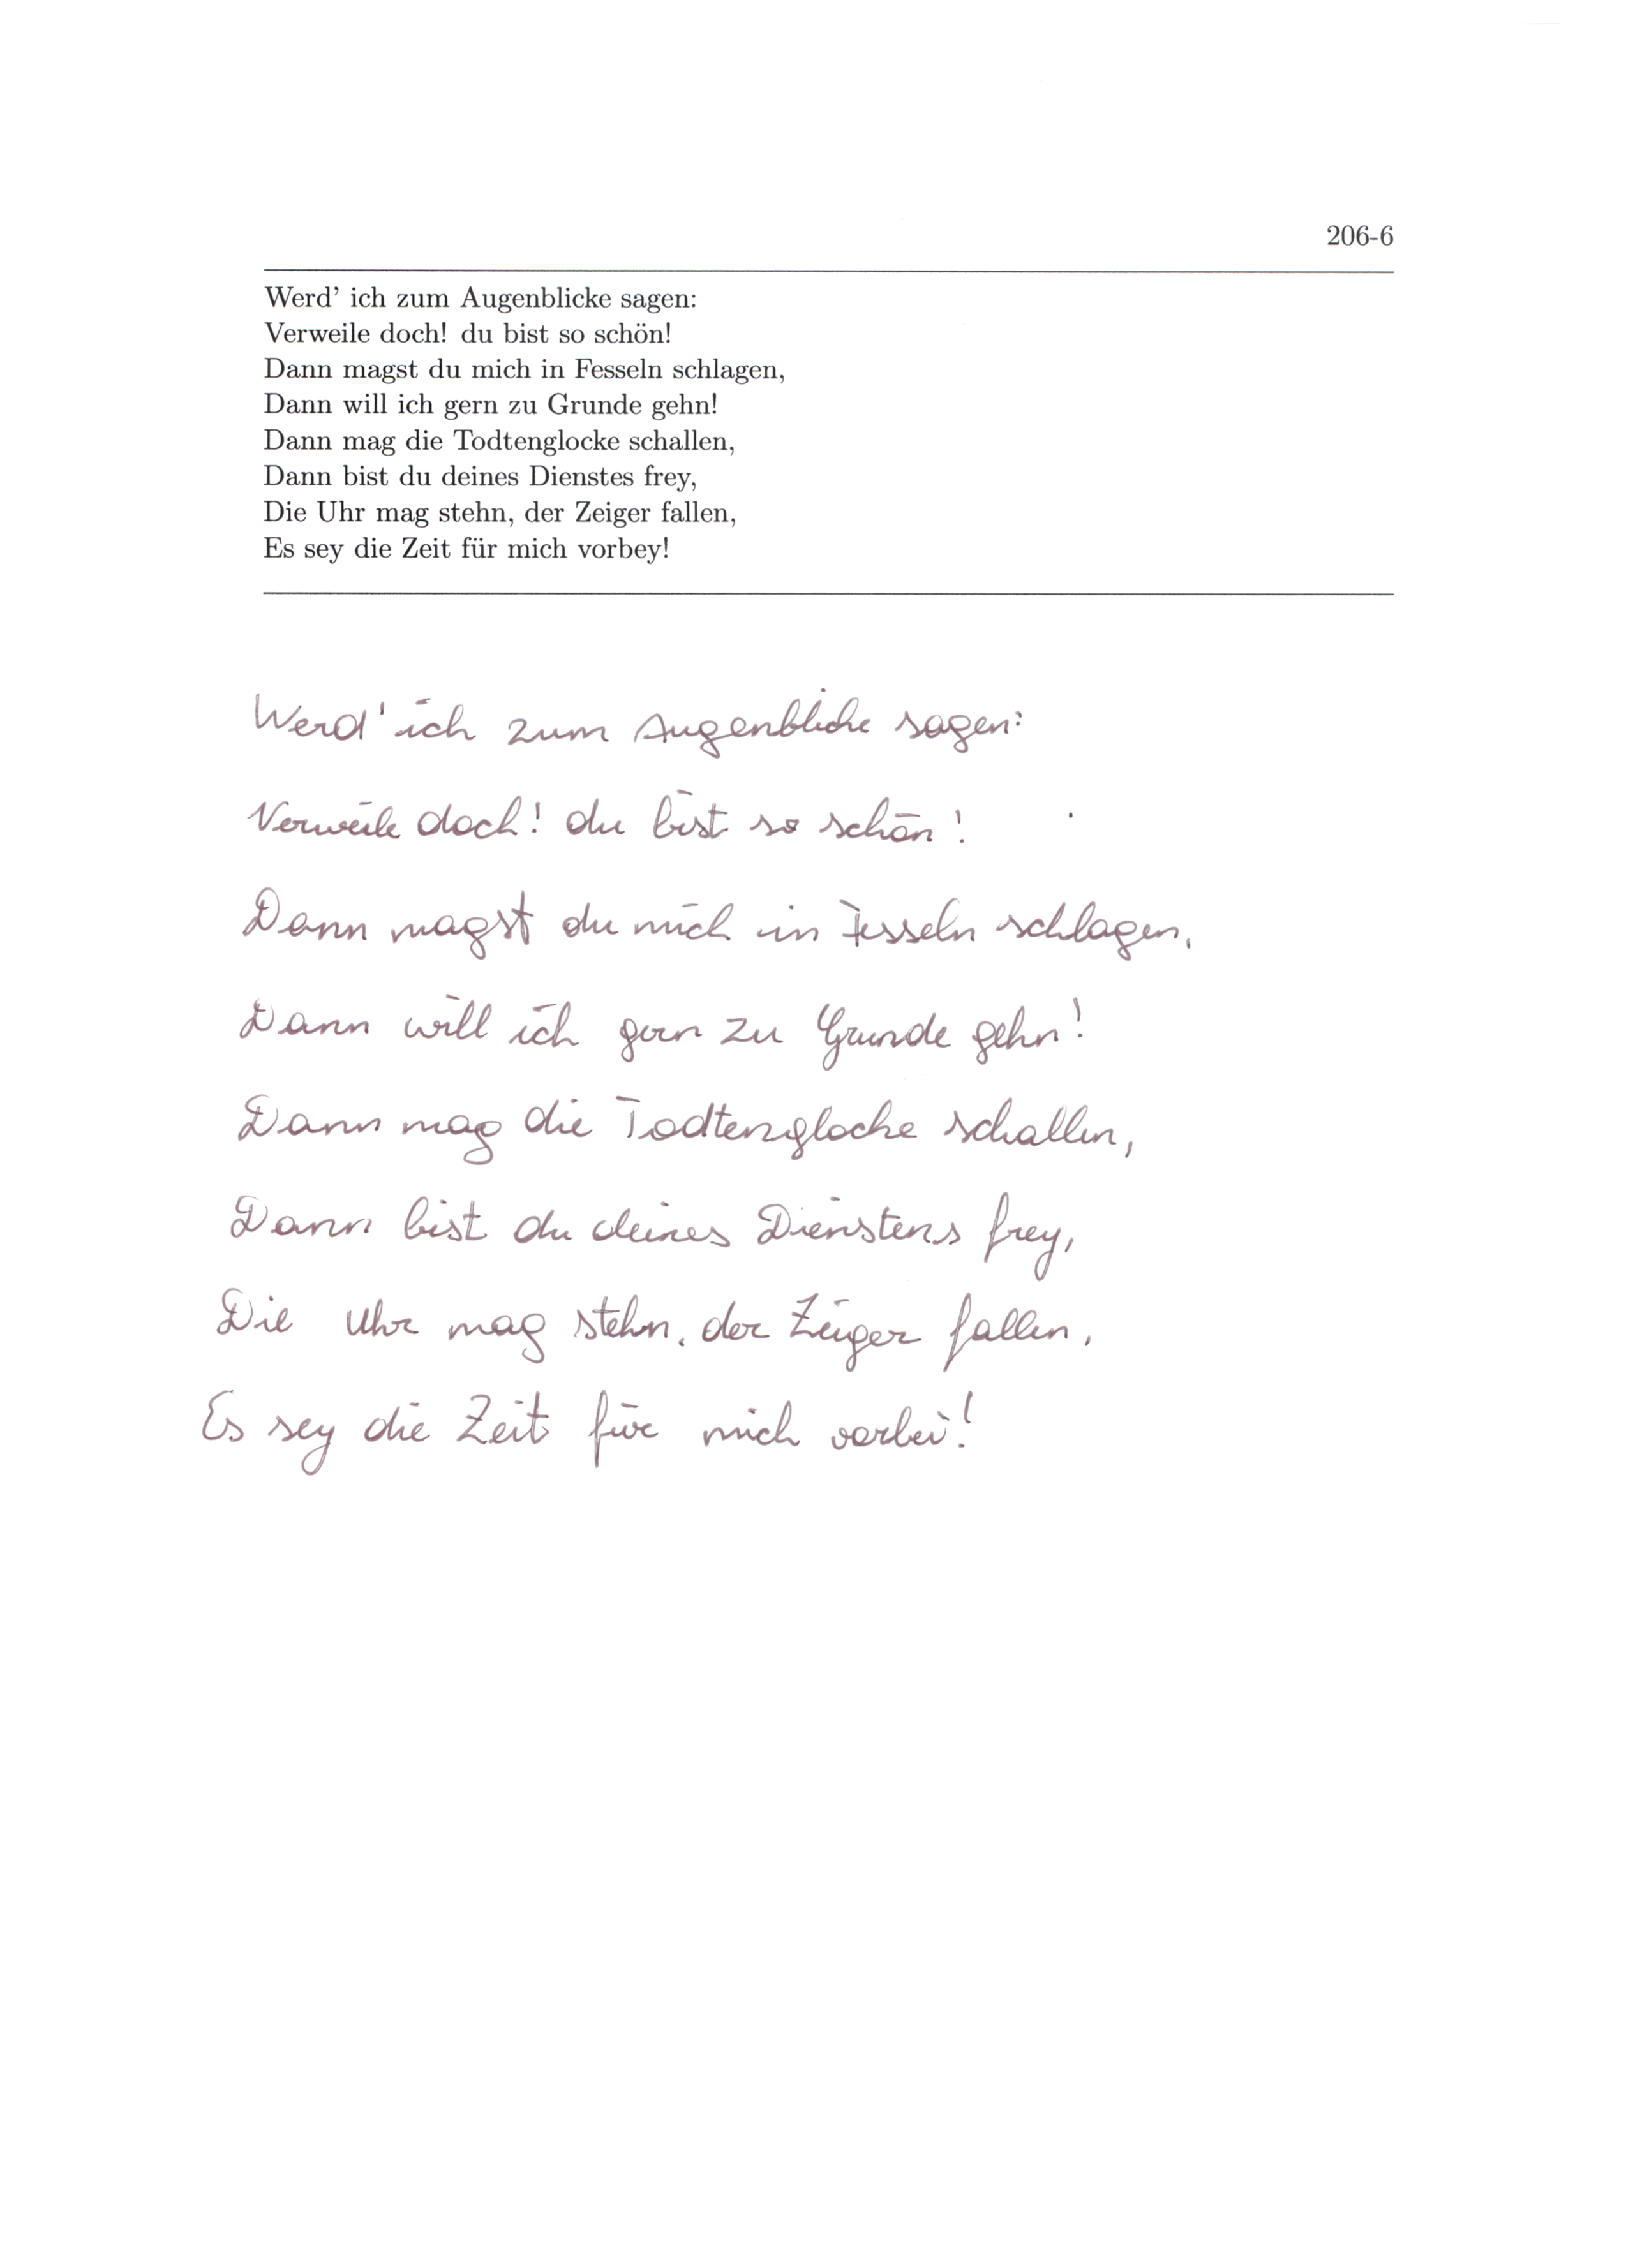 206-6
Werd' ich zum Augenblicke sagen:
Verweile doch! du bist so schön!
Dann magst du mich in Fesseln schlagen,
Dann will ich gern zu Grunde gehn!
Dann mag die Todtenglocke schallen,
Dann bist du deines Dienstes frey,
Die Uhr mag stehn, der Zeiger fallen,
Es sey die Zeit für mich vorbey!
Werd' ich zum Augenblicke sagen:
Verweile doch! du bist so schön!
Dann magst du mich in Fesseln schlagen,
Dann will ich gern zu Grunde gehn!
Dann mag die Todtenglocke schallen,
Dann bist du deines Dienstens frey,
Die Uhr mag stehn, der Zeiger fallen,
Es sey die Zeit für mich vorbei!